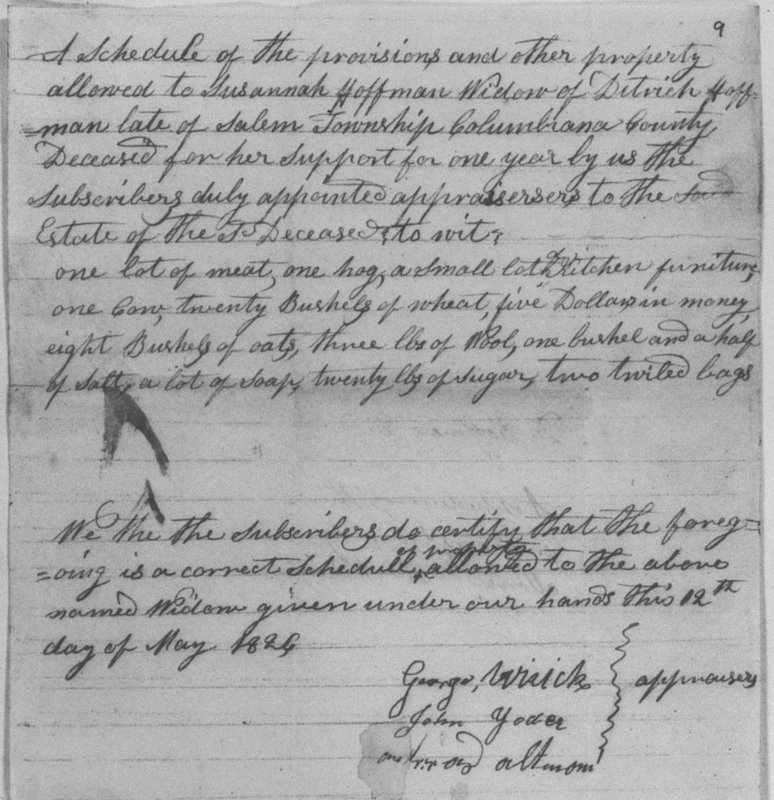 9
A Schedule of the provisions and other property
allowed to Susannah Hoffman Widow of Ditrich Hoff-
=man late of Salem Township Columbiana County
Deceasd for her Support for one year by us the
Subscribers duly appointed appraisersers to the Said
Estate of the Sd Deceased, to wit,
one lot of meat, one hog, a small lot Kitchen funiture,
one Cow, twenty Bushels of wheat, five Dollars in money,
eight Bushels of oats, three lbs of Wool, one bushel and a half
of Salt, a lot of Soap, twenty lbs of Sugar, two twiled bags
We the the Subscribers do certify that the foreg=
=oing is a correct Schedule of property allowed to the above
named Widow given under our hands this 12th
day of May 1826
George, Wiick
John Yoder appraisers
altmom